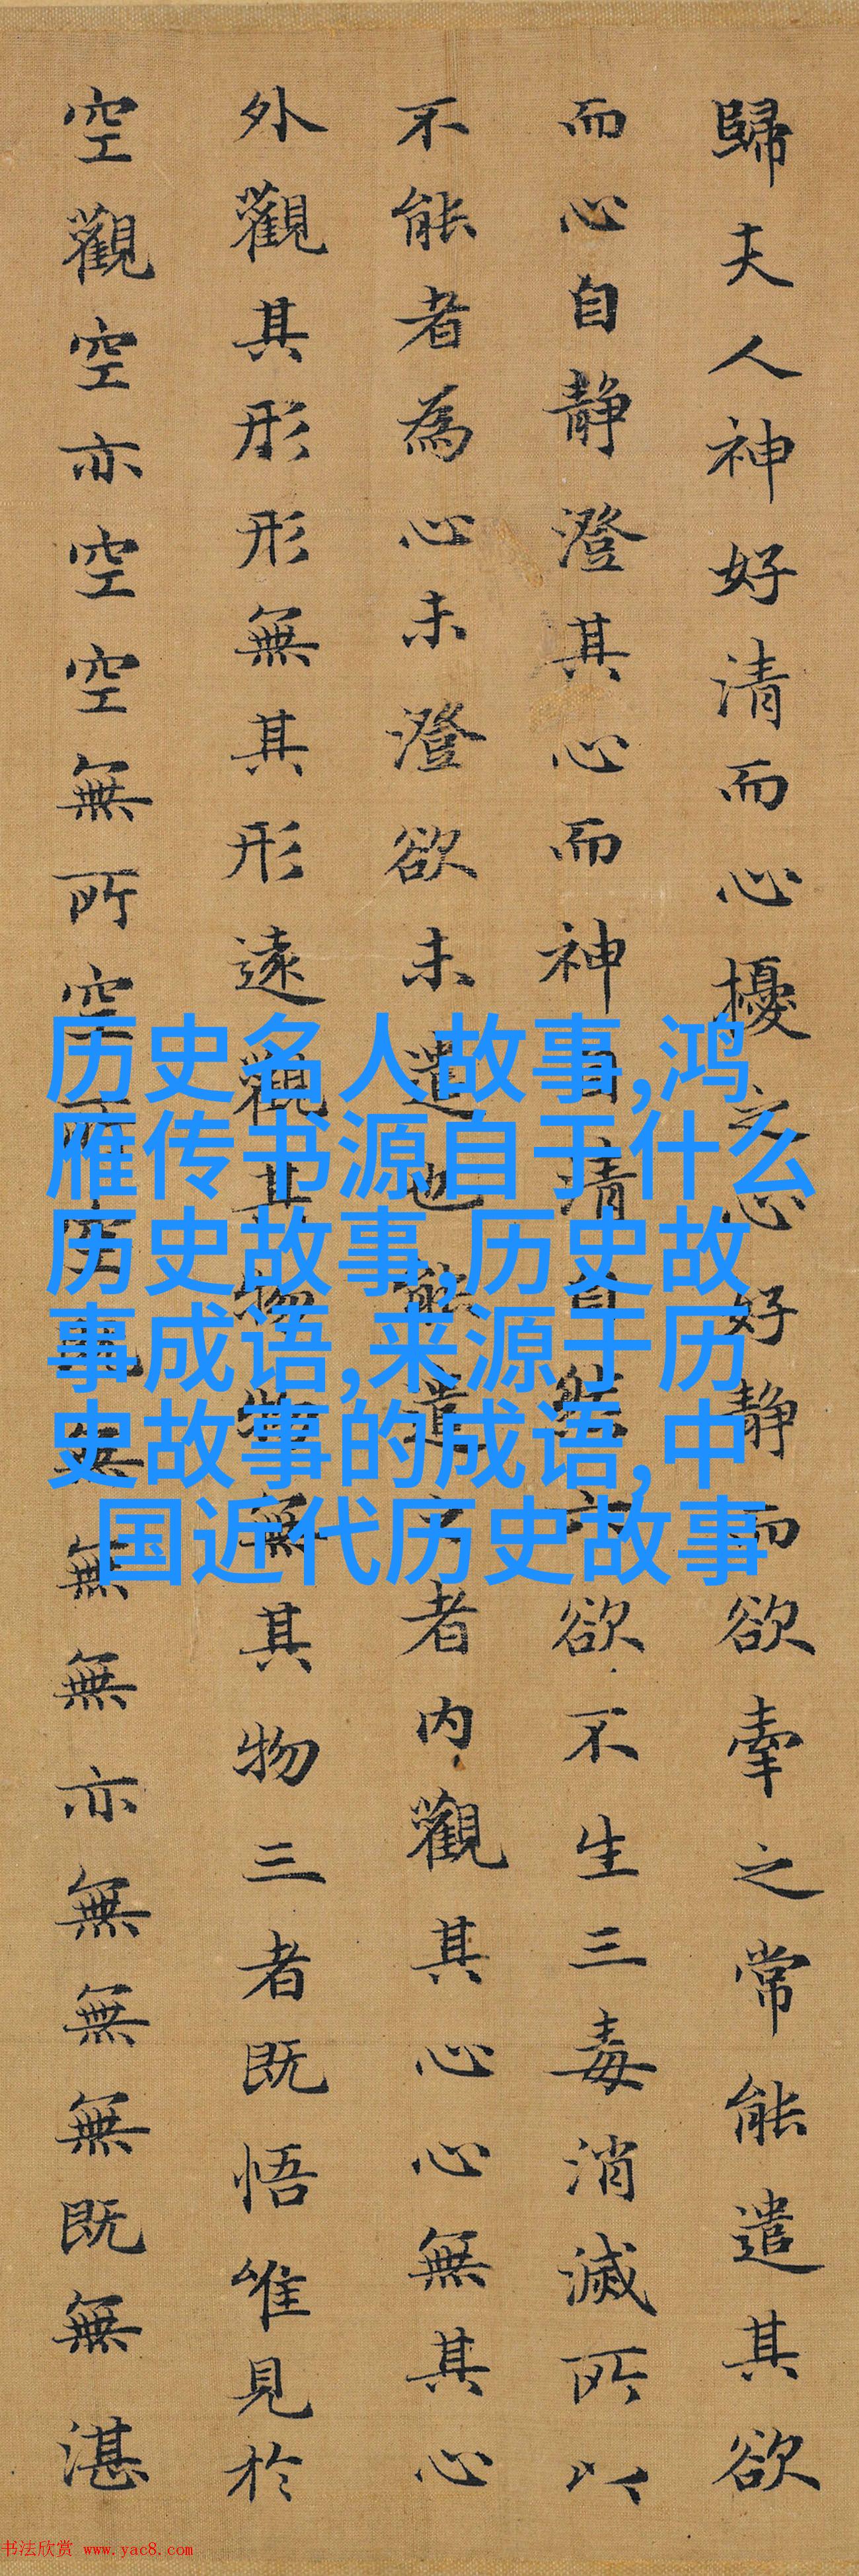 歸夫人神好清而心擾之心好静而欲牽之常能遣其欲
而心自静澄其心而神自清自然六欲不生三毒消滅所以
不能者為心未澄欲未遣也能遣之者内觀其心心無其心
外觀其形形無其形遠觀其物物無其物三者既悟唯見於
空觀空亦空空無所空所空既無無無亦無無無既無湛
历史名人故事,鸿
雁传书源自于什么
历史故事,历史故
事成语,来源于历
史故事的成语,中
国近代历史故事
书法欣赏 www.yac8.com